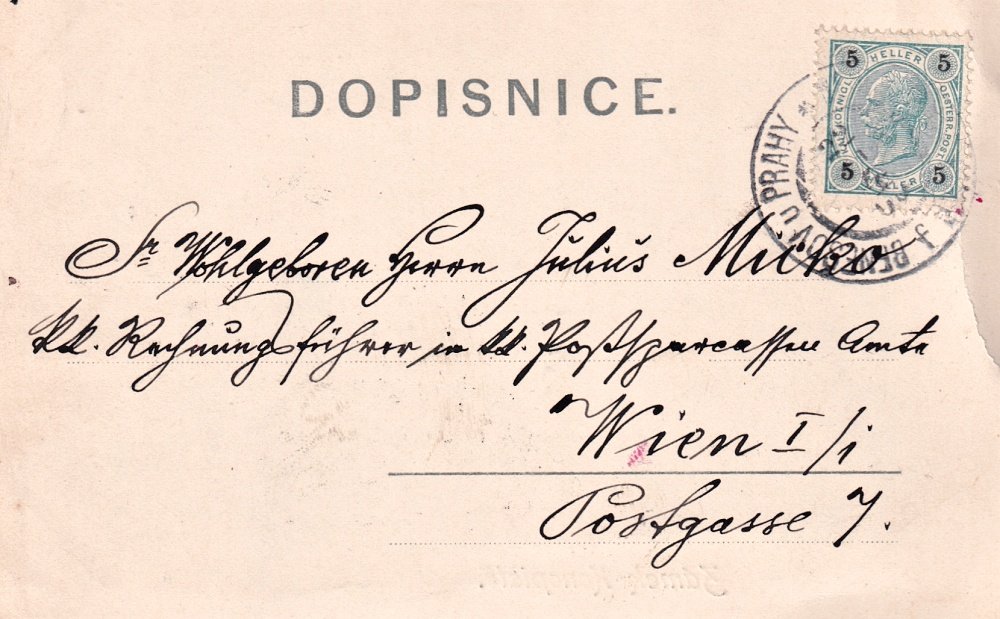 DOPISNICE.
5 HELLER 5
KAIS. KOENIGL. OESTERR. POST
5 HELLER 5
BENEŠOV U PRAHY
Sr Wohlgeboren Herrn Julius Micko
kk. Rechnungsführer in kk. Postsparcassen Amte
Wien I/i
Postgasse 7.